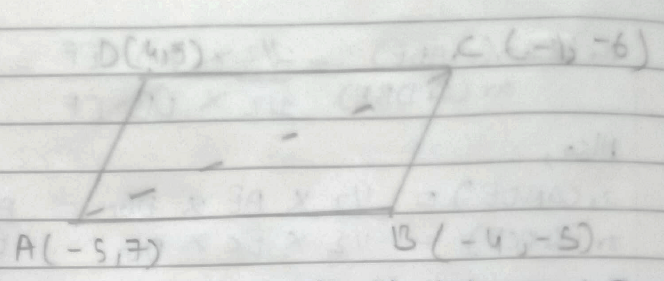 D(4,5) C (-1, -6)
A(-5,7) B (-4,-5)